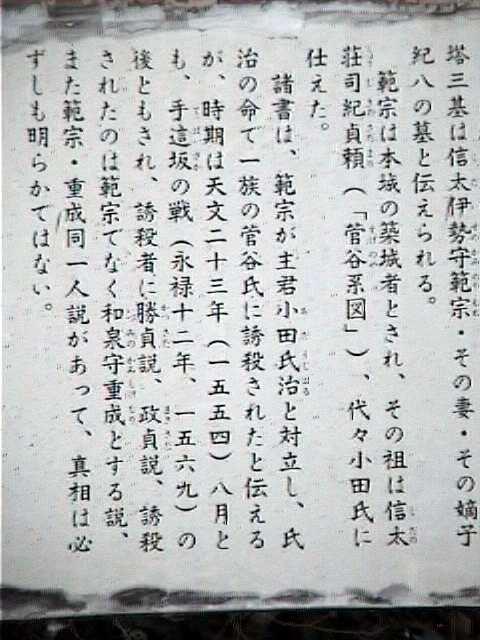 塔三基は信太伊勢守範宗・その妻・その嫡子
紀八の墓と伝えられる。
範宗は本城の築城者とされ、その祖は信太
荘司紀貞頼（「菅谷系図」）、代々小田氏に
仕えた。
諸書は、範宗が主君小田氏治と対立し、氏
治の命で一族の菅谷氏に誘殺されたと伝える
が、時期は天文二十三年（一五五四）八月と
も、手這坂の戦（永禄十二年、一五六九）の
後ともされ、誘殺者に勝貞説、政貞説、誘殺
されたのは範宗でなく和泉守重成とする説、
また範宗・重成同一人説があって、真相は必
ずしも明らかではない。